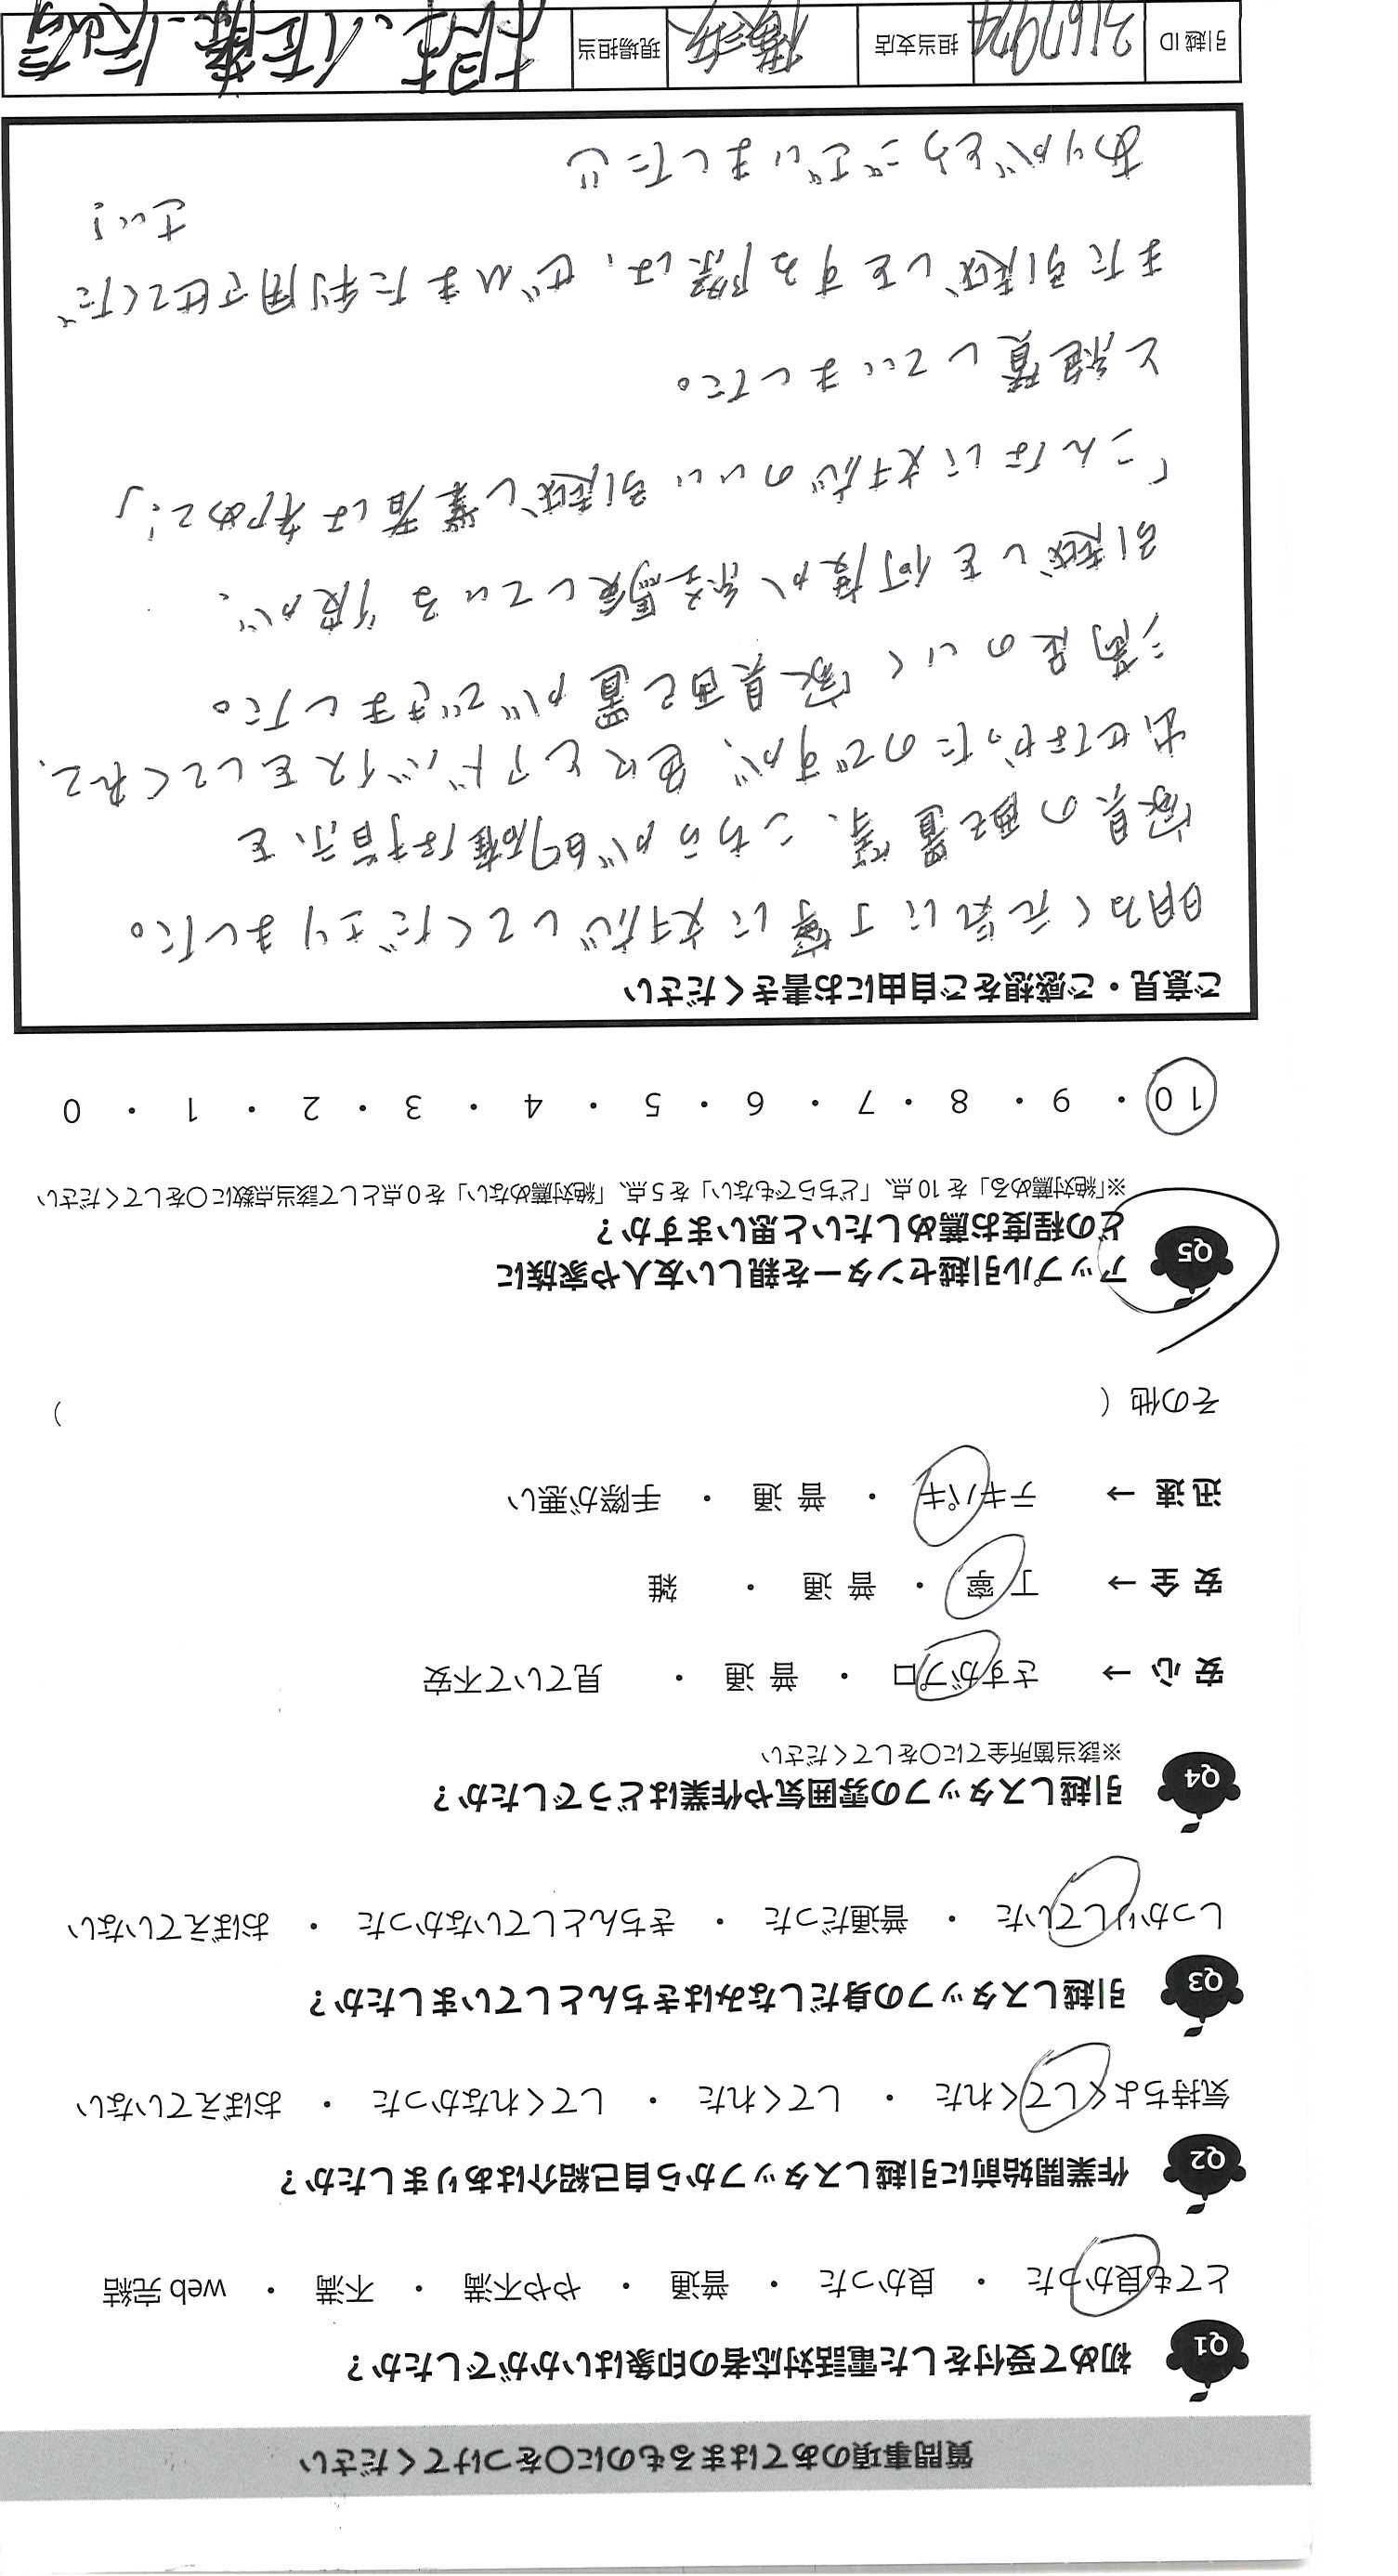 質問事項のあてはまるものに〇をつけてください
Q1 初めて受付をした電話対応者の印象はいかがでしたか？
とても良かった ・ 良かった ・ 普通 ・ やや不満 ・ 不満 ・ web完結
Q2 作業開始前に引越しスタッフから自己紹介はありましたか？
気持ちよくしてくれた ・ してくれた ・ してくれなかった ・ おぼえていない
Q3 引越しスタッフの身だしなみはきちんとしていましたか？
しっかりしていた ・ 普通だった ・ きちんとしていなかった ・ おぼえていない
Q4 引越しスタッフの雰囲気や作業はどうでしたか？
※該当箇所全てに〇をしてください
安心 → さすがプロ ・ 普通 ・ 見ていて不安
安全 → 丁寧 ・ 普通 ・ 雑
迅速 → テキパキ ・ 普通 ・ 手際が悪い
その他（ ）
Q5 アップル引越センターを親しい友人や家族に
どの程度お薦めしたいと思いますか？
※「絶対薦める」を10点、「どちらでもない」を5点、「絶対薦めない」を0点として該当点数に〇をしてください
10 ・ 9 ・ 8 ・ 7 ・ 6 ・ 5 ・ 4 ・ 3 ・ 2 ・ 1 ・ 0
ご意見・ご感想をご自由にお書きください
明るく元気に丁寧に対応してくださりました。
家具の配置等、こちらが明確な指示を
出せなかったのですが、色々とアドバイスをしてくれて、
満足のいく家具配置ができました。
引越しを何度か経験している彼が、
「こんなに対応のいい引越し業者は初めて！」
と絶賛していました。
また引越しをする際は、ぜひまた利用させてくだ
さい！
ありがとうございました
引越ID 3167974 担当支店 横浜 現場担当